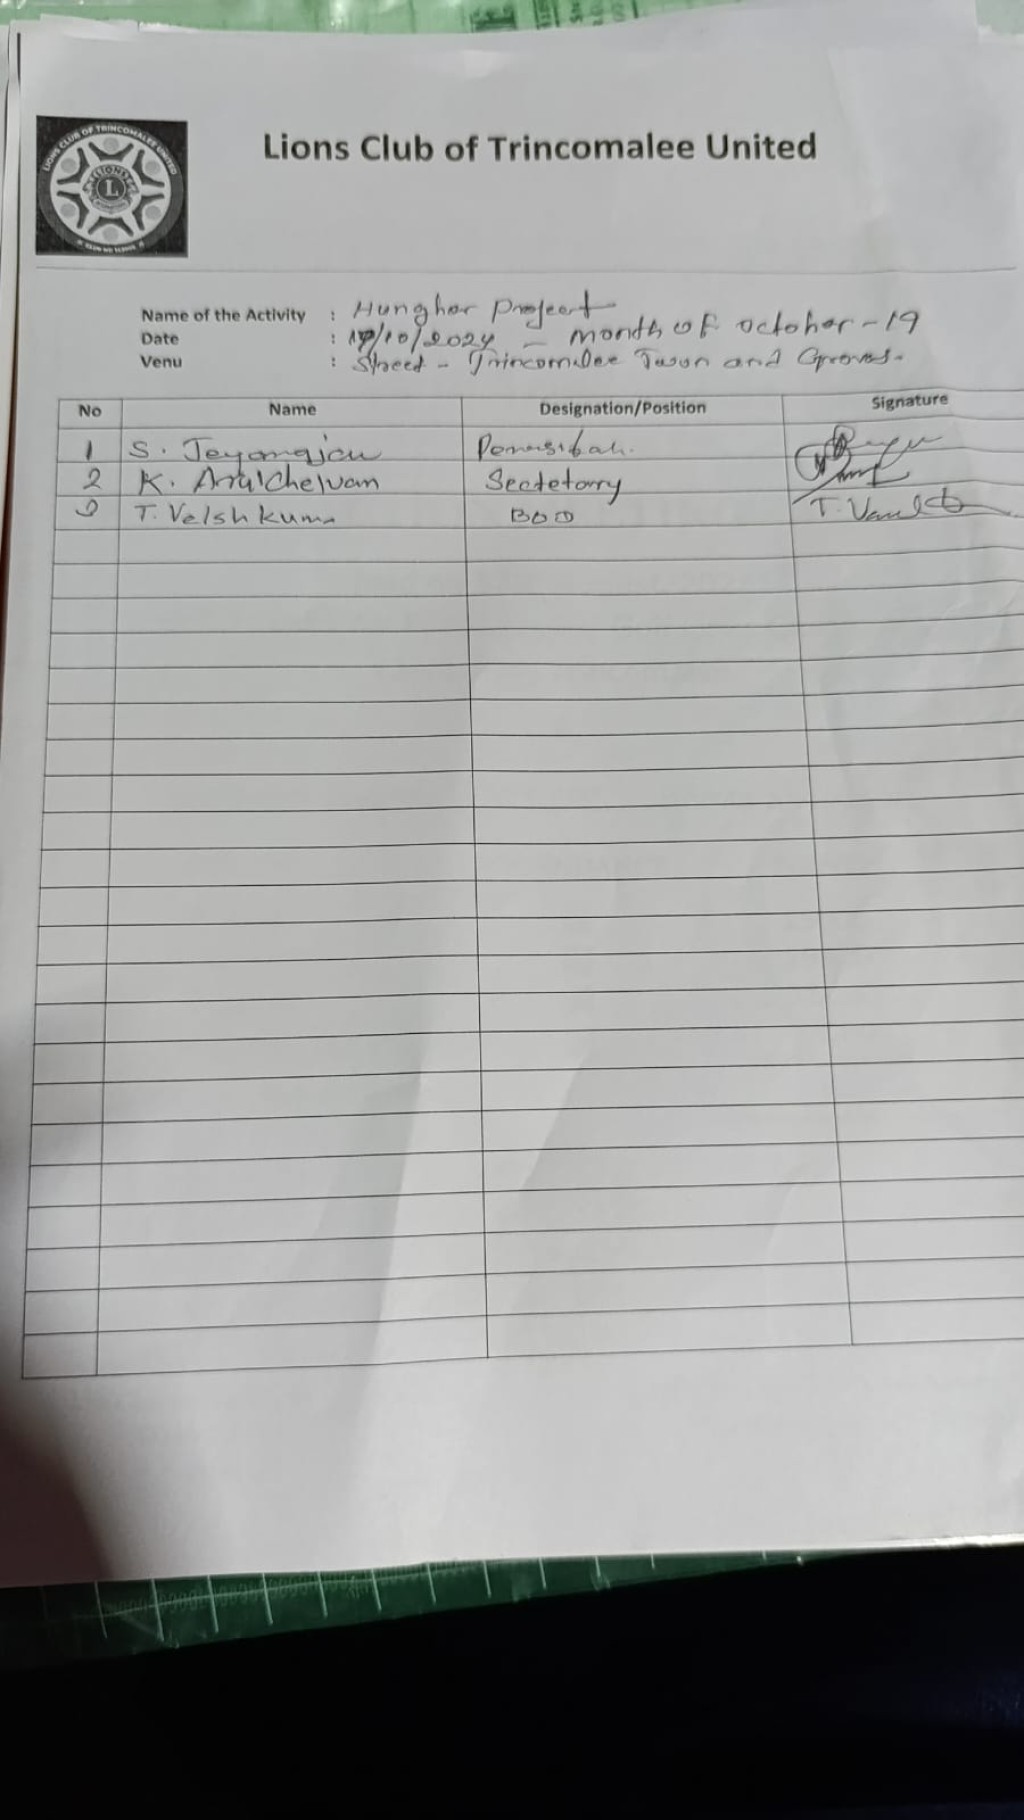 LIONS CLUB OF TRINCOMALEE UNITED
L
Lions Club of Trincomalee United
Name of the Activity : Hunghor Project
Date : /10/2024 – month of october - 19
Venu : Street - Trincomalee Town and
No Name Designation/Position Signature
1 S.
2 K. Arulchelvan Sectetorry
3 T. Velshkuma BOD T.